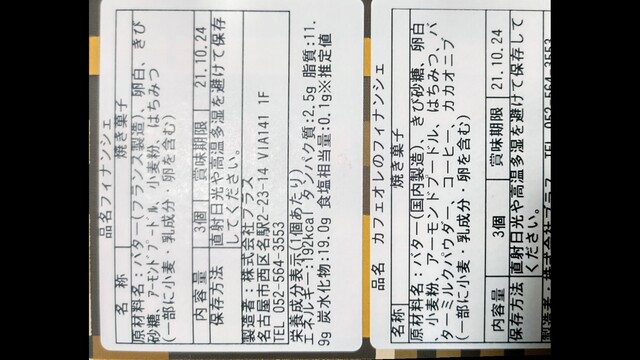 品名フィナンシェ
名 称 焼き菓子
原材料名：バター(フランス製造)、卵白、きび
砂糖、アーモンドプードル、小麦粉、はちみつ
(一部に小麦・乳成分・卵を含む)
内容量 3個 賞味期限 21.10.24
保存方法 直射日光や高温多湿を避けて保存
してください。
製造者：株式会社プラス
名古屋市西区名駅2-23-14 VIA141 1F
TEL 052-564-3553
栄養成分表示(1個あたり)
エネルギー:192kcal タンパク質:2.5g 脂質:11.
9g 炭水化物:19.0g 食塩相当量:0.1g※推定値
品名 カフェオレのフィナンシェ
名称 焼き菓子
原材料名：バター(国内製造)、きび砂糖、卵白
小麦粉、アーモンドプードル、はちみつ、バ
ターミルクパウダー、コーヒー、カカオニブ
(一部に小麦・乳成分・卵を含む)
内容量 3個 賞味期限 21.10.24
保存方法 直射日光や高温多湿を避けて保存して
ください。
製造者：株式会社プラス TEL 052-564-3553